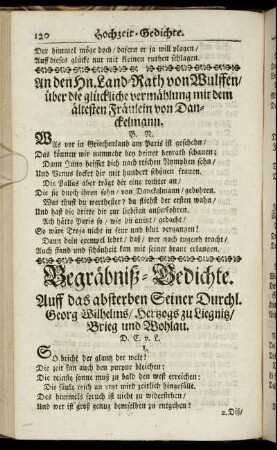 120 Hochzeit-Gedichte.
Der himmel möge doch/ dafern er ja will plagen/
Auff dieses glücke nur mit kleinen ruthen schlagen.
An den Hn. Land-Rath von Wulffen/
über die glückliche vermählung mit dem
ältesten Fräulein von Dan-
ckelmann.
B. N.
WAs vor in Griechenland am Paris ist geschehn/
Das können wir nunmehr bey deiner heyrath schauen:
Dann Juno heisset dich nach reichen Nymphen sehn/
Und Venus locket dir mit hundert schönen frauen.
Die Pallas aber trägt dir eine tochter an/
Die sie durch ihren sohn/ von Danckelmann/ gebohren.
Was thust du werthester? du fliehst der ersten wahn/
Und hast die dritte dir zur liebsten außerkohren.
Ach hätte Paris so/ wie du anitzt/ gedacht/
So wäre Troja nicht in feur und blut vergangen!
Dann dein exempel lehrt/ daß/ wer nach tugend tracht/
Auch stand und schönheit kan mit seiner braut erlangen.
Begräbniß-Gedichte.
Auff das absterben Seiner Durchl.
Georg Wilhelms/ Hertzogs zu Liegnitz/
Brieg und Wohlau.
D. C. v. L.
1.
SO bricht der glantz der welt!
Die zeit kan auch den purpur bleichen:
Die reinste sonne muß zu bald den west erreichen:
Die säule reich an ertzt wird zeitlich hingefällt.
Des himmels spruch ist nicht zu widerstehen/
Und wer ist groß genug demselben zu entgehen?
2. Diß/